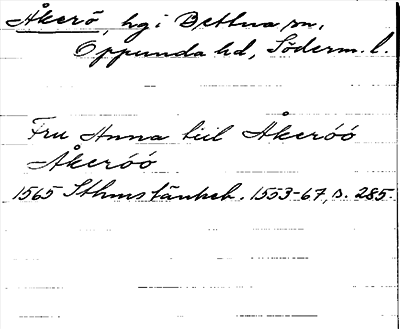 Åkerö, hg i Bettna sn,
Oppunda hd, Söderm. l.
Fru Anna till Åkeróó
Åkeróó
1565 Sthms tänkeb. 1553-67, s. 285.